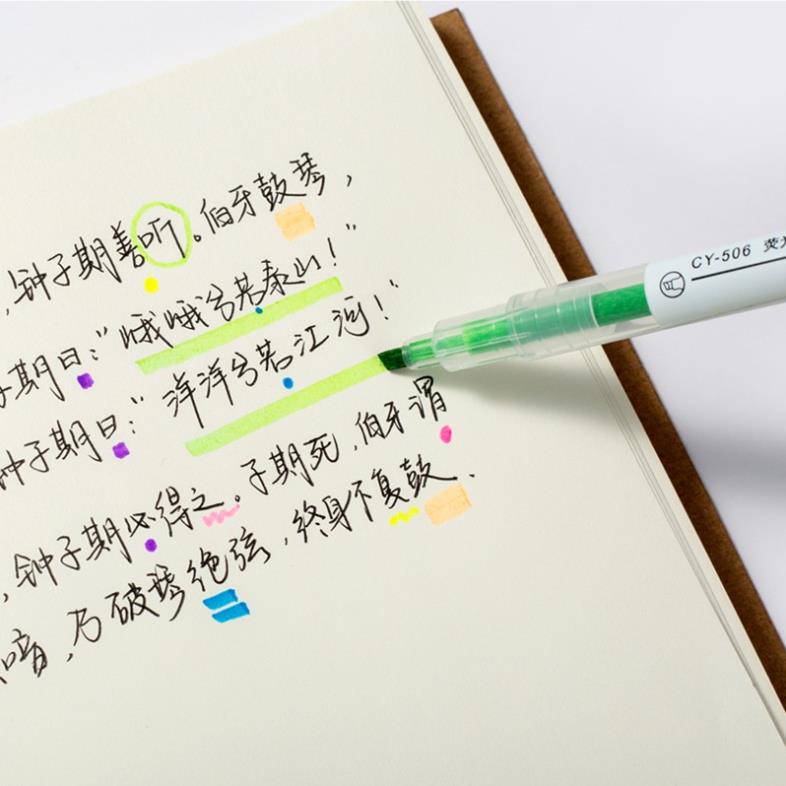 ，钟子期善听。伯牙鼓琴，
子期曰：“峨峨兮若泰山！”
钟子期曰：“洋洋兮若江河！”
，钟子期必得之。子期死，伯牙谓
音，乃破琴绝弦，终身不复鼓.
CY-506 荧光